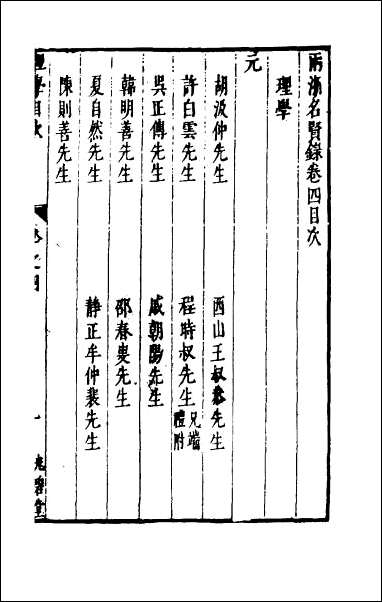 兩浙名賢錄卷四目次
理學
元
胡汲仲先生　西山王叔先生
許白雲先生　程時叔先生兄端禮附
吳正傳先生　戚朝陽先生
韓明善先生　邵春叟先生
夏自然先生　靜正牟仲裴先生
陳則善先生
理學目次　卷之四　一　光碧堂